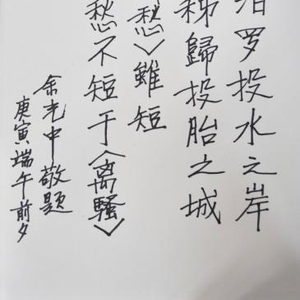 汨罗投水之岸
秭歸投胎之城
愁〉雖短
愁不短于〈离騷〉
余光中敬題
庚寅端午前夕